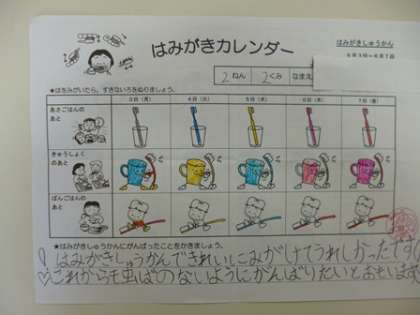 はみがきカレンダー
はみがきしゅうかん
6月3日〜6月7日
2ねん 2くみ なまえ
★はをみがいたら、すきないろをぬりましょう。
3日(月) 4日(火) 5日(水) 6日(木) 7日(金)
あさごはんの
あと
きゅうしょく
のあと
ばんごはんの
あと
★はみがきしゅうかんにがんばったことをかきましょう。
はみがきしゅうかんできれいにみがけてうれしかったです
これからも虫ばのないようにがんばりたいとおもいます